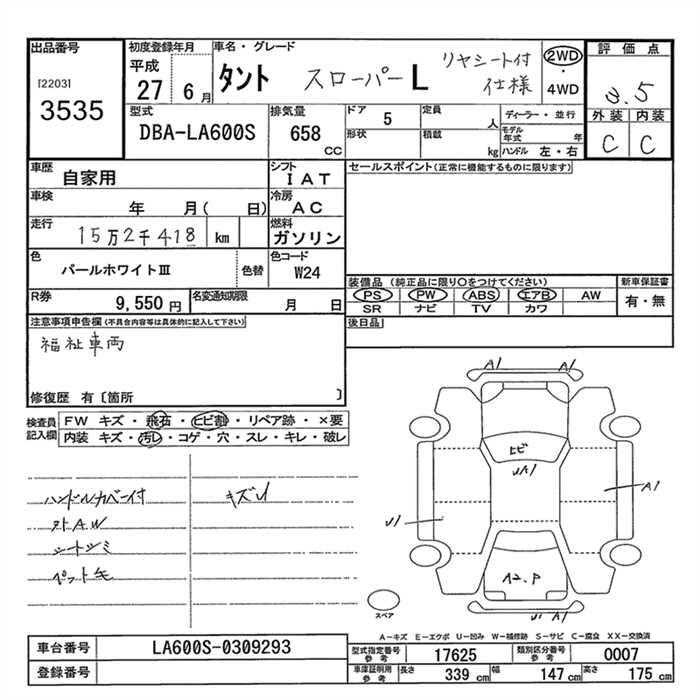 出品番号
[2203]
3535
初度登録年月
平成
27 6月
車名・グレード
タント スローパーL リヤシート付
仕様
2WD
・
4WD
評価点
3.5
外装 内装
C C
型式
DBA-LA600S
排気量
658
CC
ドア 5
定員 人
形状
積載 kg
ディーラー・並行
モデル年式 年
ハンドル 左・右
車歴
自家用
シフト
IAT
セールスポイント(正常に機能するものに限ります)
車検
年 月( 日)
冷房
AC
走行
15万2千418 km
燃料
ガソリン
色
パールホワイトⅢ
色替
色コード
W24
装備品 (純正品に限り○をつけてください)
PS PW ABS エアB AW
SR ナビ TV カワ
新車保証書
有・無
R券
9,550 円
名変通知期限
月 日
後日品
注意事項申告欄(不具合内容等は具体的に記入して下さい)
福祉車両
修復歴 有〔箇所 〕
検査員
記入欄
FW キズ・飛石・ヒビ割・リペア跡・×要
内装 キズ・汚レ・コゲ・穴・スレ・キレ・破レ
ハンドルカバー付
キズU
シートシミ
A1 A1
ヒビ
UA1
A1
U1
A2.P
U1 A1
スペア
A-キズ E-エクボ U-凹み W-補修跡 S-サビ C-腐食 XX-交換済
車台番号
LA600S-0309293
登録番号
型式指定番号
参考
17625
類別区分番号
参考
0007
車庫証明用
参考
長さ 339 cm 幅 147 cm 高さ 175 cm